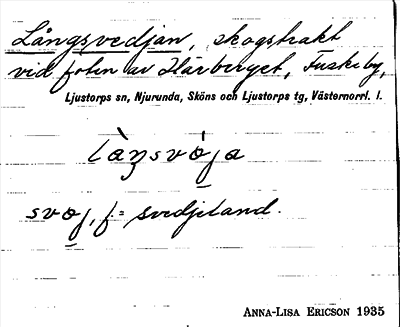 Långsvedjan, skogstrakt
vid foten av Härberget, Fuskeby,
Ljustorps sn, Njurunda, Sköns och Ljustorps tg, Västernorrl. l.
làŋsvö̀ja
svœj, f = svedjeland.
ANNA-LISA ERICSON 1935